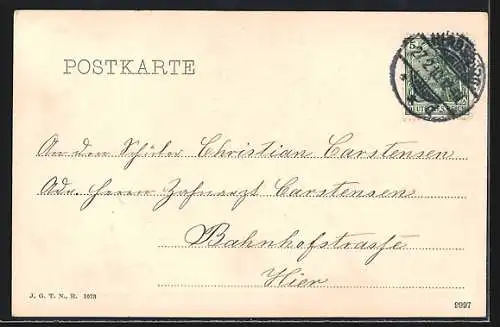 POSTKARTE
An den Schüler Christian Carstensen
Adr. Herrn Zahnarzt Carstensen
Bahnhofstrasse
Hier
J. G. T. N., R. 1073
9997